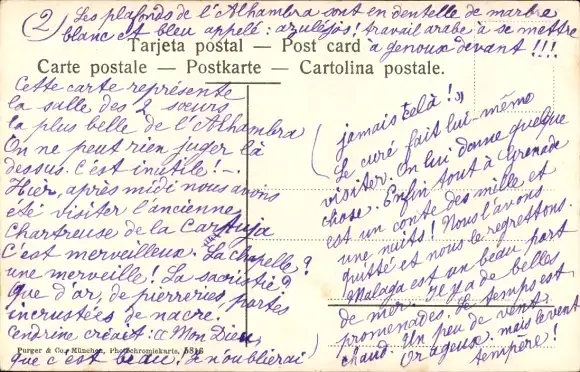 (2) Les plafonds de l'Alhambra sont en dentelle de marbre
blanc et bleu appelé : azuléjos ! travail arabe à se mettre
à genoux devant !!!
Tarjeta postal — Post card
Carte postale — Postkarte — Cartolina postale.
Cette carte représente
la salle des 2 sœurs
la plus belle de l'Alhambra
On ne peut rien juger là
dessus. C'est inutile ! —.
Hier, après midi nous avons
été visiter l'ancienne
Chartreuse de la Cartuja
C'est merveilleux. La chapelle ?
une merveille ! La sacristie ?
que d'or, de pierreries, portes
incrustées de nacre.
criait : « Mon Dieu,
que c'est beau ! Je n'oublierai
Purger & Co., München, Photochromiekarte, 5816
jamais celà ! »
Le curé fait lui-même
visiter. On lui donne quelque
chose. Enfin tout à Grenade
est un conte des mille et
une nuits ! Nous l'avons
quitté et nous le regrettons.
Malaga est un beau port
de mer. Il y a de belles
promenades. Le temps est
chaud. Un peu de vent,
Orageux, mais le vent
tempère !